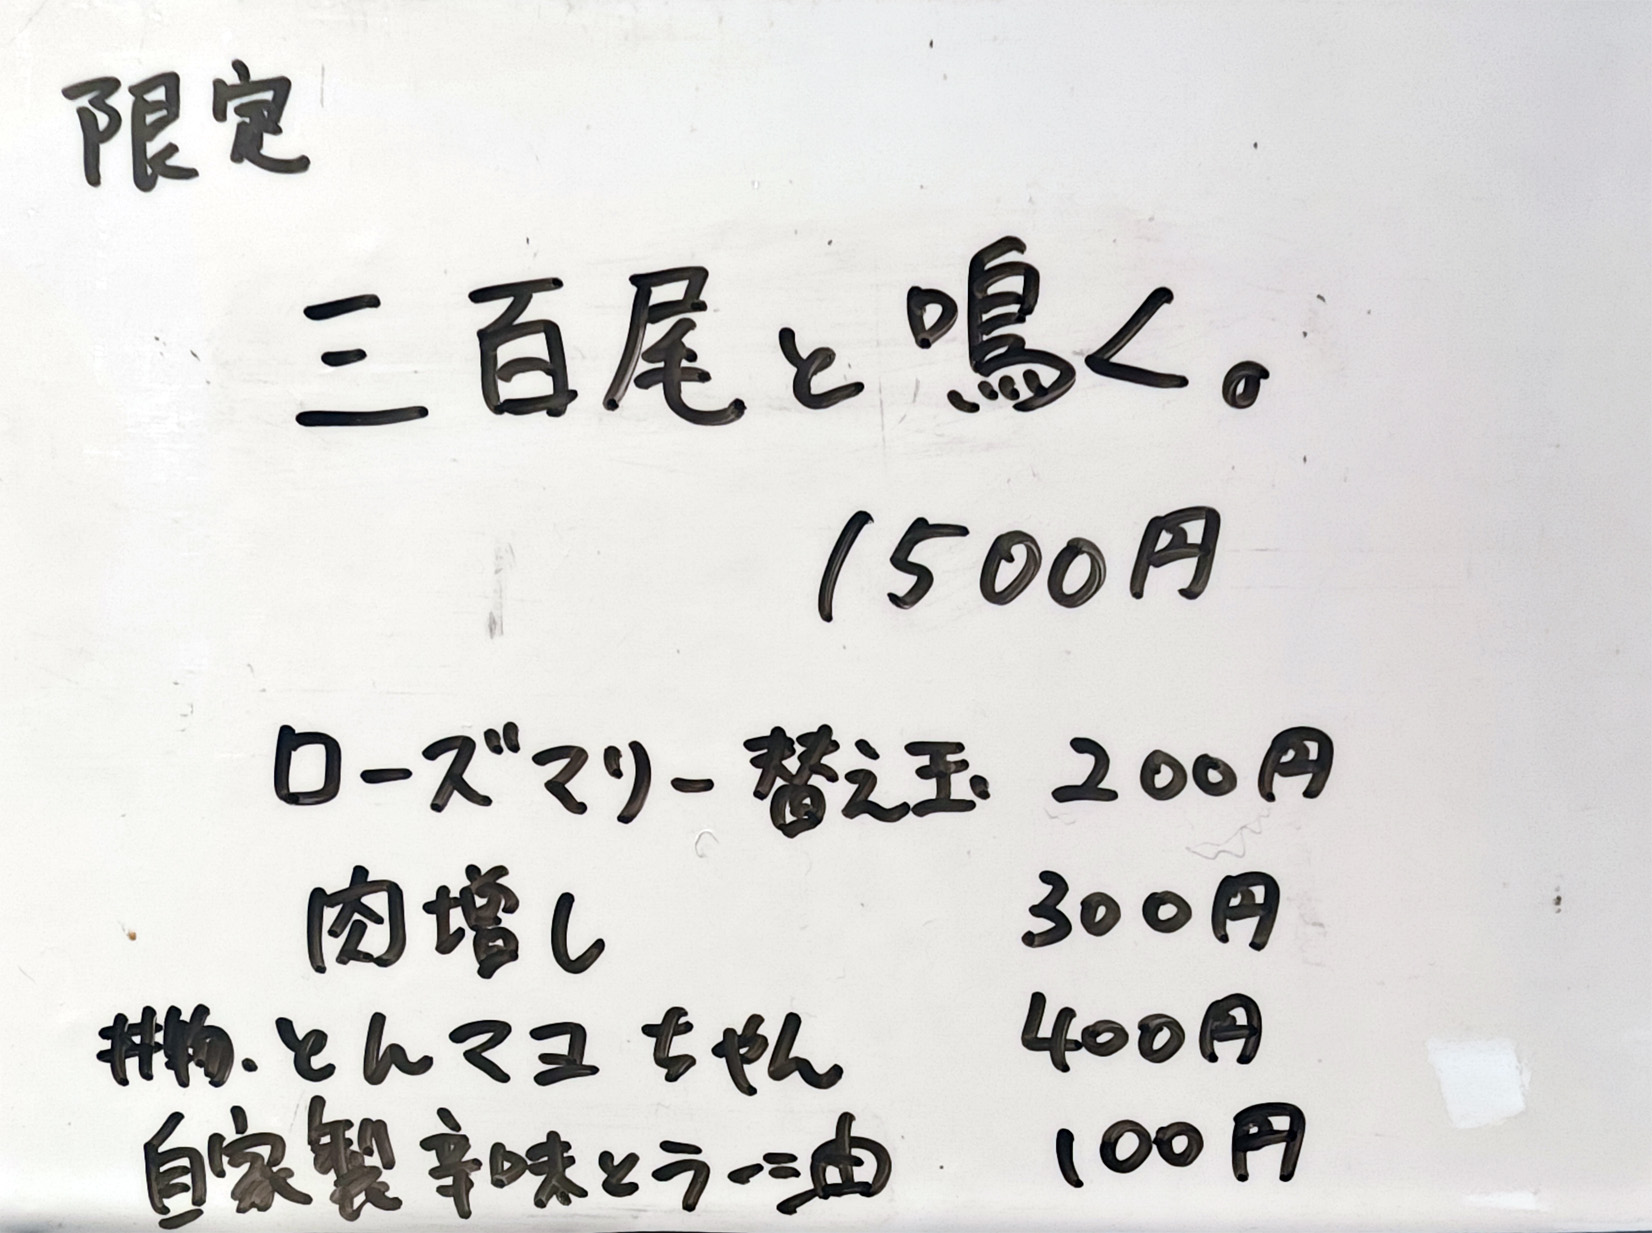 限定
三百尾と鳴く。
1500円
ローズマリー替え玉 200円
肉増し 300円
丼物.とんマヨちゃん 400円
自家製辛味とラー油 100円